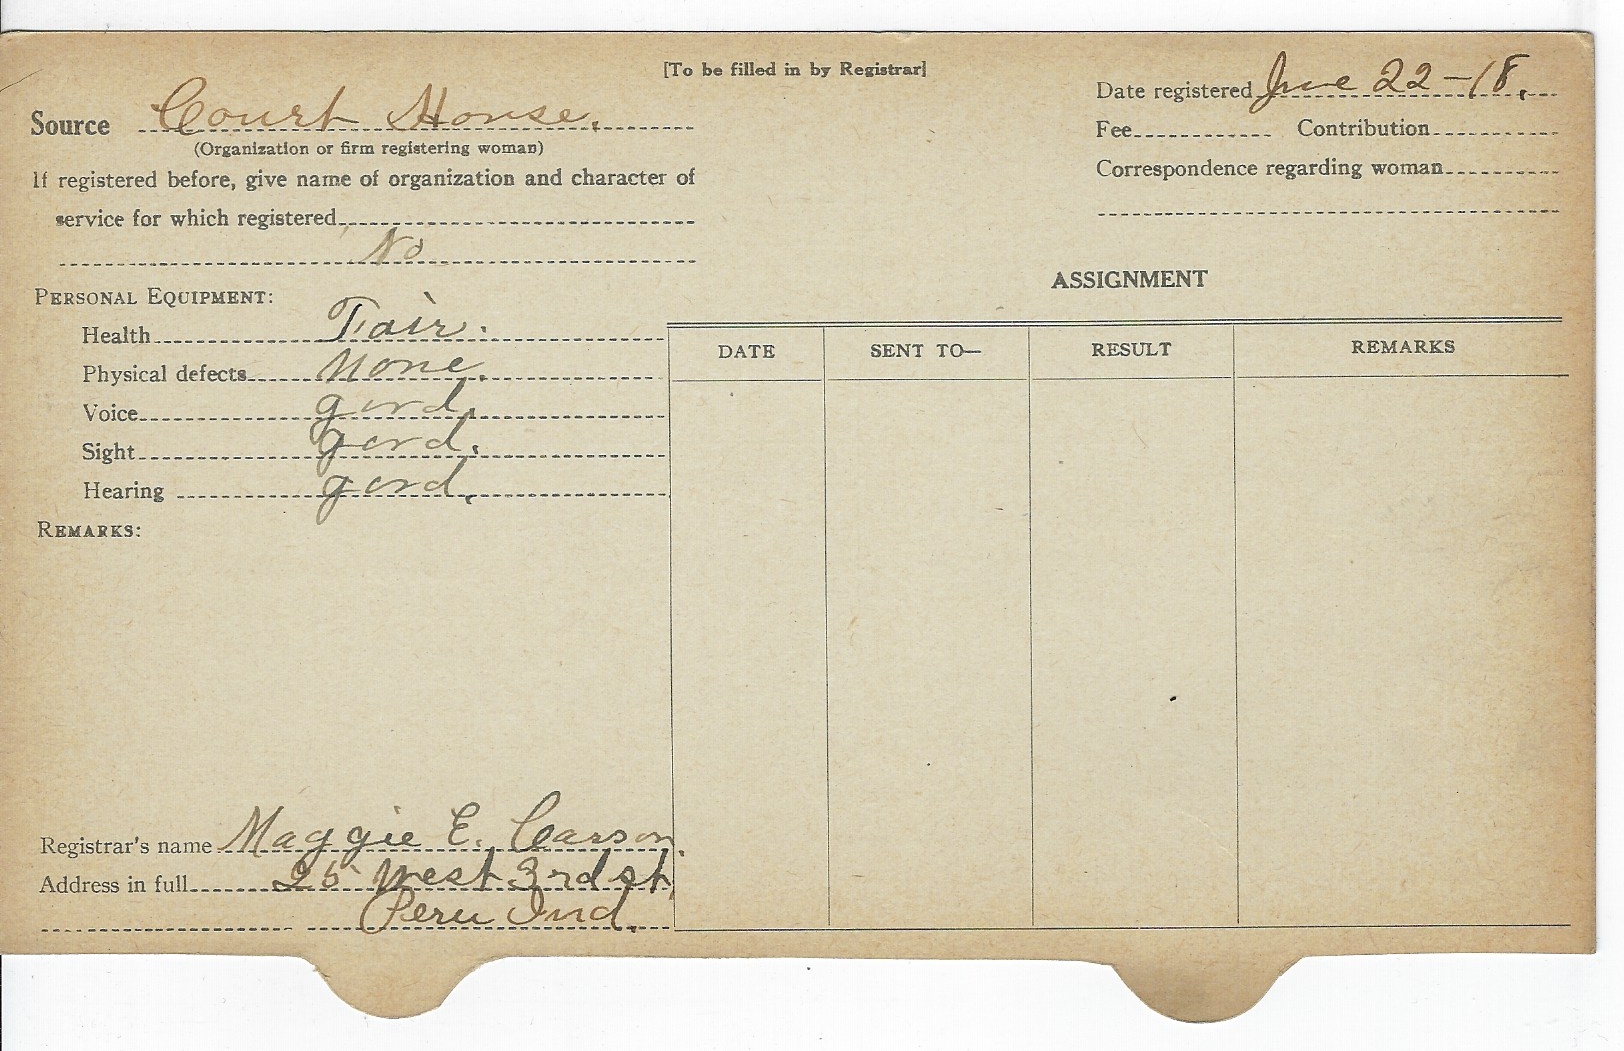 [To be filled in by Registrar]
Source Court House.
(Organization or firm registering woman)
If registered before, give name of organization and character of
service for which registered
No
Date registered June 22-18.
Fee Contribution
Correspondence regarding woman
PERSONAL EQUIPMENT:
Health Fair.
Physical defects None.
Voice good.
Sight good.
Hearing good.
REMARKS:
ASSIGNMENT
DATE SENT TO— RESULT REMARKS
Registrar's name Maggie E. Carson.
Address in full 25 West 3rd st,
Peru Ind.